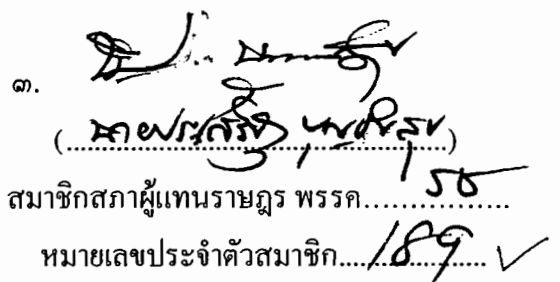 ๓.
(นายประเสริฐ บุญชัยสุข)
สมาชิกสภาผู้แทนราษฎร พรรค................
หมายเลขประจำตัวสมาชิก.....189.......... ✓